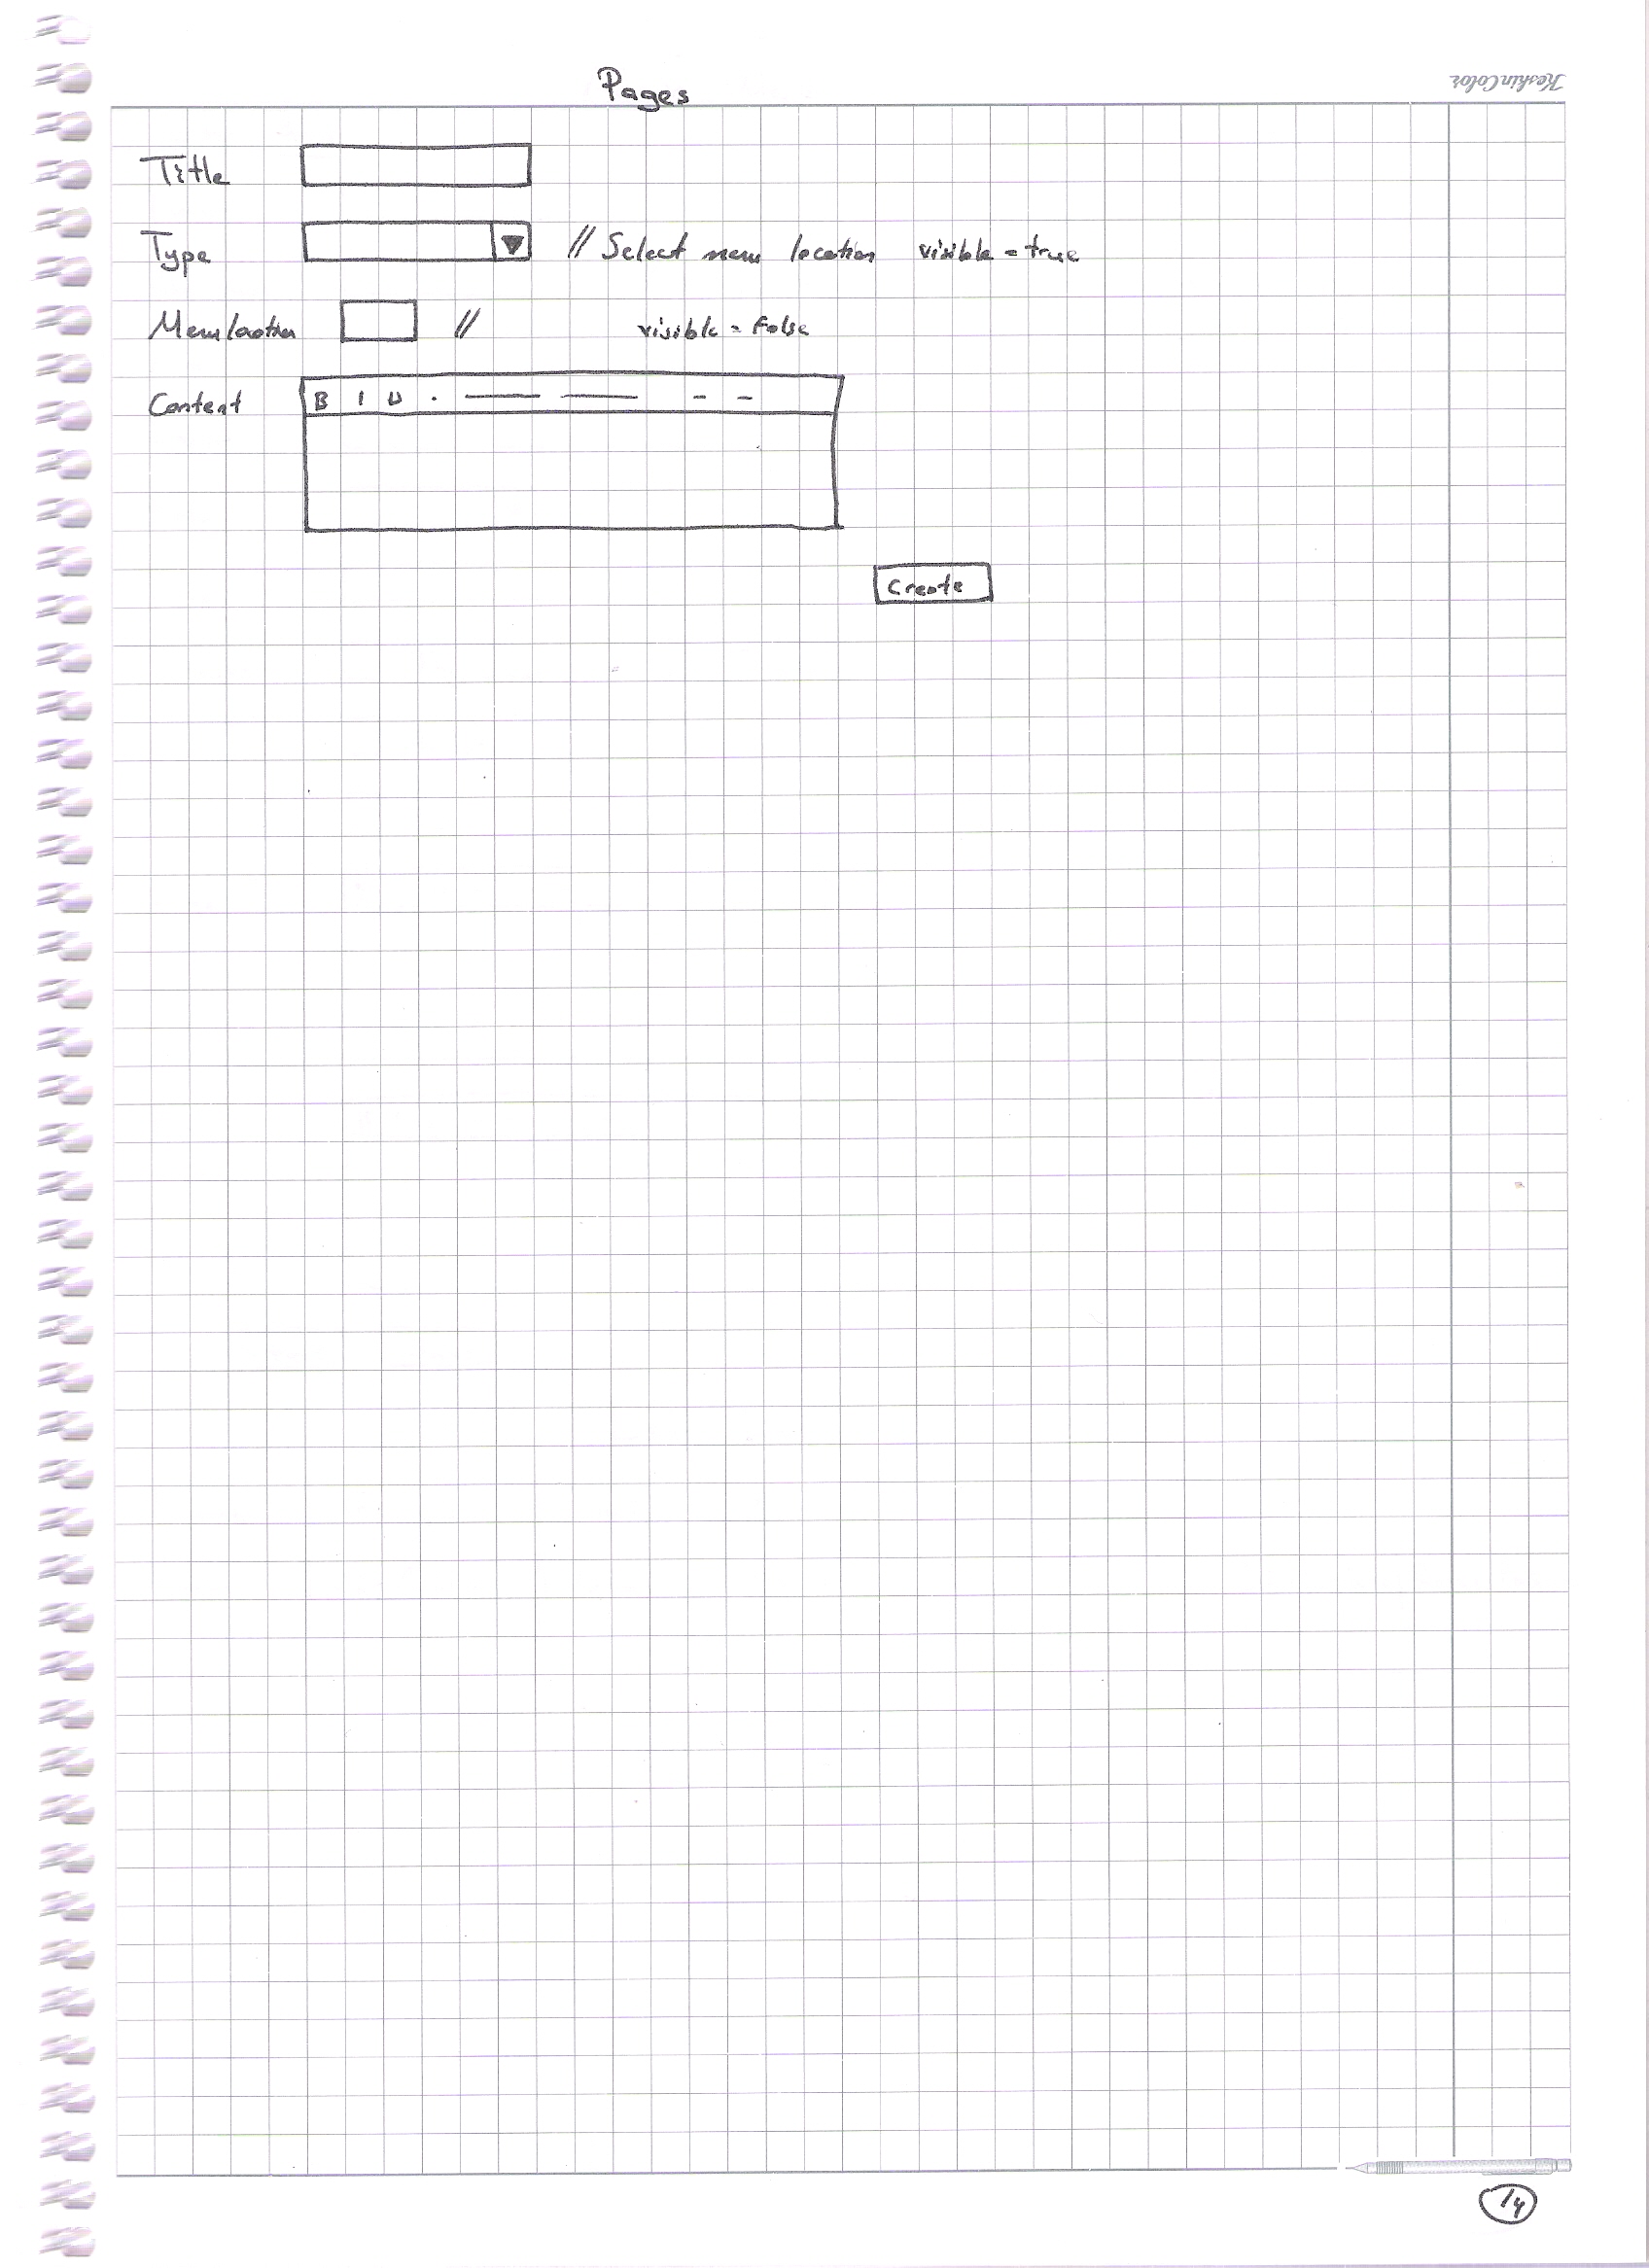 Pages
KeskinColor
Title
Type // Select menu location visible = true
Menulocation // visible = False
Content B I U
Create
14